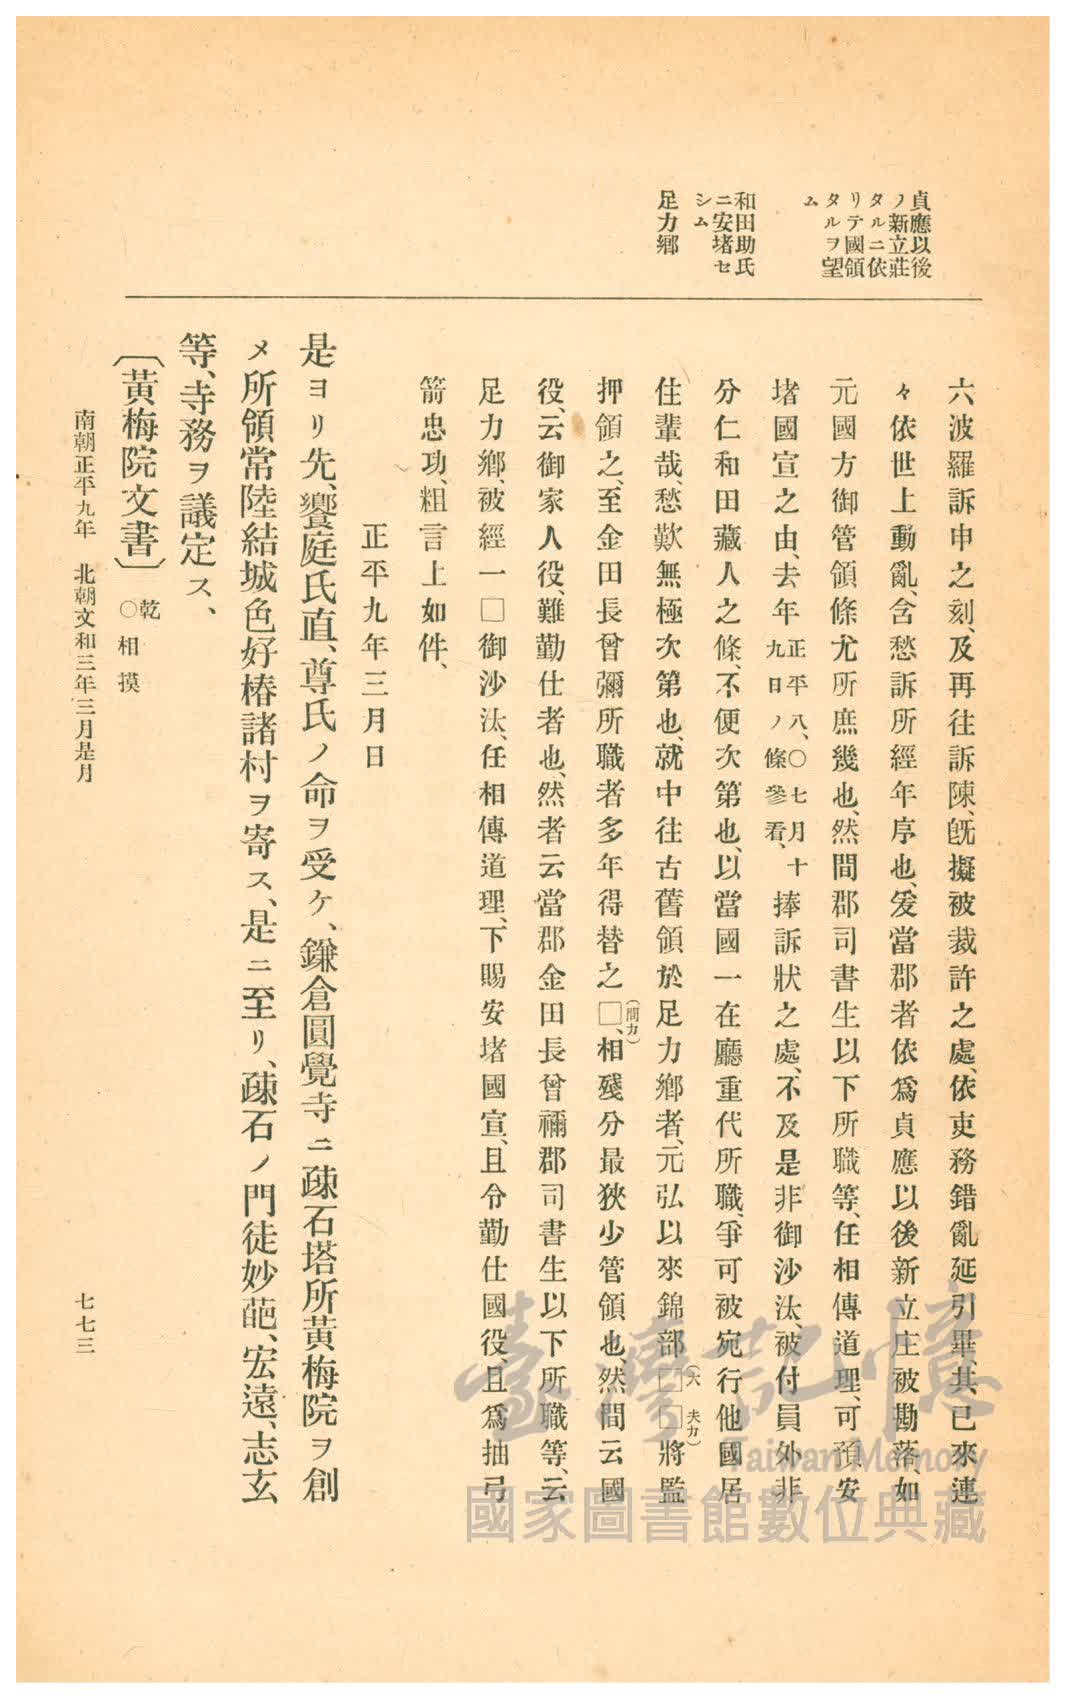 貞應以後
ノ新立莊
タルニ依
リテ國領
タルヲ望
ム
和田助氏
ニ安堵セ
シム
足力鄕
六波羅訴申之刻、及再往訴陳、旣擬被裁許之處、依吏務錯亂延引畢、其已來連
々依世上動亂、含愁訴所經年序也、爰當郡者依爲貞應以後新立庄被勘落、如
元國方御管領條尤所庶幾也、然間郡司書生以下所職等、任相傳道理、可預安
堵國宣之由、去年正平八、〇七月十九日ノ條參看、捧訴狀之處、不及是非御沙汰、被付員外非
分仁和田藏人之條、不便次第也、以當國一在廳重代所職、爭可被宛行他國居
住輩哉、愁歎無極次第也、就中往古舊領於足力鄕者、元弘以來錦部□(大)□(夫カ)將監
押領之、至金田長曾彌所職者多年得替之□(間カ)、相殘分最狹少管領也、然間云國
役、云御家人役、難勤仕者也、然者云當郡金田長曾禰郡司書生以下所職等、云
足力鄕、被經一□御沙汰、任相傳道理、下賜安堵國宣、且令勤仕國役、且爲抽弓
箭忠功、粗言上如件、
正平九年三月日
是ヨリ先、饗庭氏直、尊氏ノ命ヲ受ケ、鎌倉圓覺寺ニ疎石塔所黃梅院ヲ創
メ所領常陸結城色好椿諸村ヲ寄ス、是ニ至リ、疎石ノ門徒妙葩、宏遠、志玄
等、寺務ヲ議定ス、
〔黃梅院文書〕乾 〇相摸
南朝正平九年 北朝文和三年三月是月
七七三
臺灣記憶
Taiwan Memory
國家圖書館數位典藏